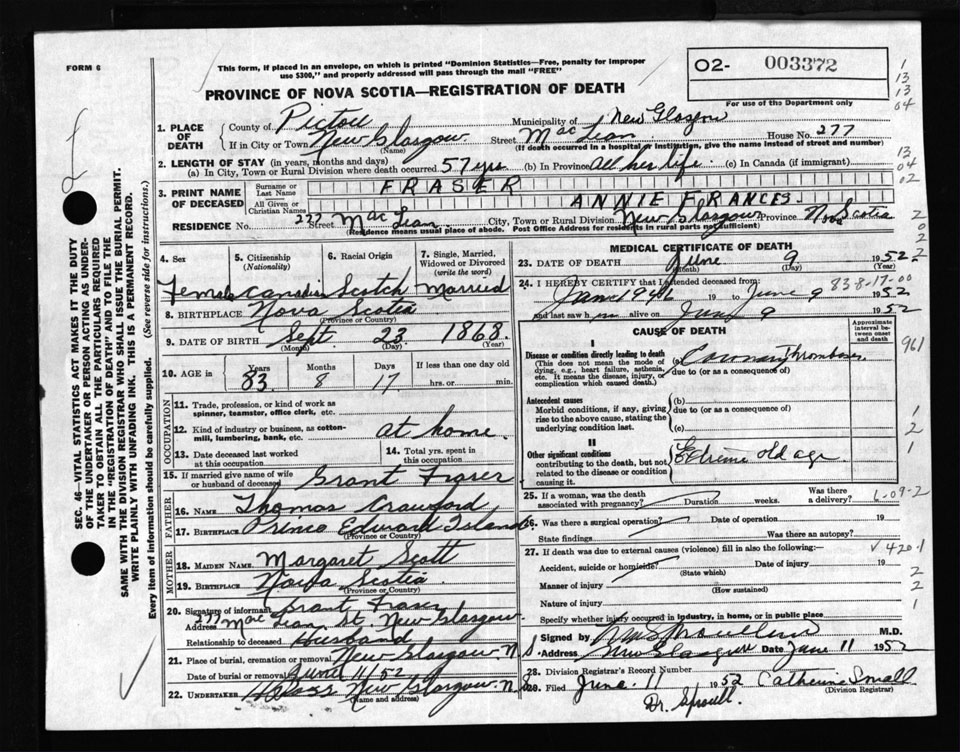 FORM 6
This form, if placed in an envelope, on which is printed "Dominion Statistics—Free, penalty for improper
use $300," and properly addressed will pass through the mail "FREE"
O2- 003372
For use of the Department only
PROVINCE OF NOVA SCOTIA—REGISTRATION OF DEATH
1. PLACE OF DEATH
County of Pictou Municipality of New Glasgow
If in City or Town New Glasgow Street MacLean House No. 277
(Name) (If death occurred in a hospital or institution, give the name instead of street and number)
2. LENGTH OF STAY (in years, months and days)
(a) In City, Town or Rural Division where death occurred 57 yrs (b) In Province all her life. (c) In Canada (if immigrant)
3. PRINT NAME OF DECEASED
Surname or Last Name FRASER
All Given or Christian Names ANNIE FRANCES
RESIDENCE No. 277 Street MacLean City, Town or Rural Division New Glasgow Province Nova Scotia
(Residence means usual place of abode. Post Office Address for residents in rural parts not sufficient)
4. Sex Female
5. Citizenship (Nationality) Canadian
6. Racial Origin Scotch
7. Single, Married, Widowed or Divorced (write the word) Married
8. BIRTHPLACE Nova Scotia
(Province or Country)
9. DATE OF BIRTH Sept 23 1868
(Month) (Day) (Year)
10. AGE in Years 83 Months 8 Days 17 If less than one day old
hrs. or min.
OCCUPATION
11. Trade, profession, or kind of work as spinner, teamster, office clerk, etc.
12. Kind of industry or business, as cotton-mill, lumbering, bank, etc. at home.
13. Date deceased last worked at this occupation
14. Total yrs. spent in this occupation
15. If married give name of wife or husband of deceased Grant Fraser
FATHER
16. NAME Thomas Crawford
17. BIRTHPLACE Prince Edward Island
(Province or Country)
MOTHER
18. MAIDEN NAME Margaret Scott
19. BIRTHPLACE Nova Scotia
(Province or Country)
20. Signature of informant Grant Fraser
Address 277 MacLean St. New Glasgow
Relationship to deceased Husband
21. Place of burial, cremation or removal New Glasgow N.S.
Date of burial or removal June 11/52
22. UNDERTAKER New Glasgow, N.S.
(Name and address)
MEDICAL CERTIFICATE OF DEATH
23. DATE OF DEATH June 9 1952
(Month) (Day) (Year)
24. I HEREBY CERTIFY that I attended deceased from 83-8-17-00
Jan 1946 19 to June 9 1952
and last saw h alive on June 9 1952
CAUSE OF DEATH
Approximate interval between onset and death
I
Disease or condition directly leading to death (a) Coronary Thrombosis
(This does not mean the mode of dying, e.g., heart failure, asthenia, etc. It means the disease, injury, or complication which caused death.)
due to (or as a consequence of)
Antecedent causes
Morbid conditions, if any, giving rise to the above cause, stating the underlying condition last.
(b)
due to (or as a consequence of)
(c)
II
Other significant conditions
contributing to the death, but not related to the disease or condition causing it.
Extreme old age
25. If a woman, was the death associated with pregnancy? Duration weeks. Was there a delivery?
26. Was there a surgical operation? Date of operation 19
State findings Was there an autopsy?
27. If death was due to external causes (violence) fill in also the following:—
Accident, suicide or homicide? Date of injury 19
(State which)
Manner of injury
(How sustained)
Nature of injury
Specify whether injury occurred in industry, in home, or in public place
Signed by M.D.
Address New Glasgow Date June 11 1952
28. Division Registrar's Record Number
Filed June 11 1952 Catherine Small
(Division Registrar)
Dr. Sproull.
961
420.1
SEC. 46—VITAL STATISTICS ACT MAKES IT THE DUTY
OF THE UNDERTAKER OR PERSON ACTING AS UNDER-
TAKER TO OBTAIN ALL THE PARTICULARS REQUIRED
IN THE "REGISTRATION OF DEATH" AND TO FILE THE
SAME WITH THE DIVISION REGISTRAR WHO SHALL ISSUE THE BURIAL PERMIT.
WRITE PLAINLY WITH UNFADING INK. THIS IS A PERMANENT RECORD.
Every item of information should be carefully supplied. (See reverse side for instructions.)